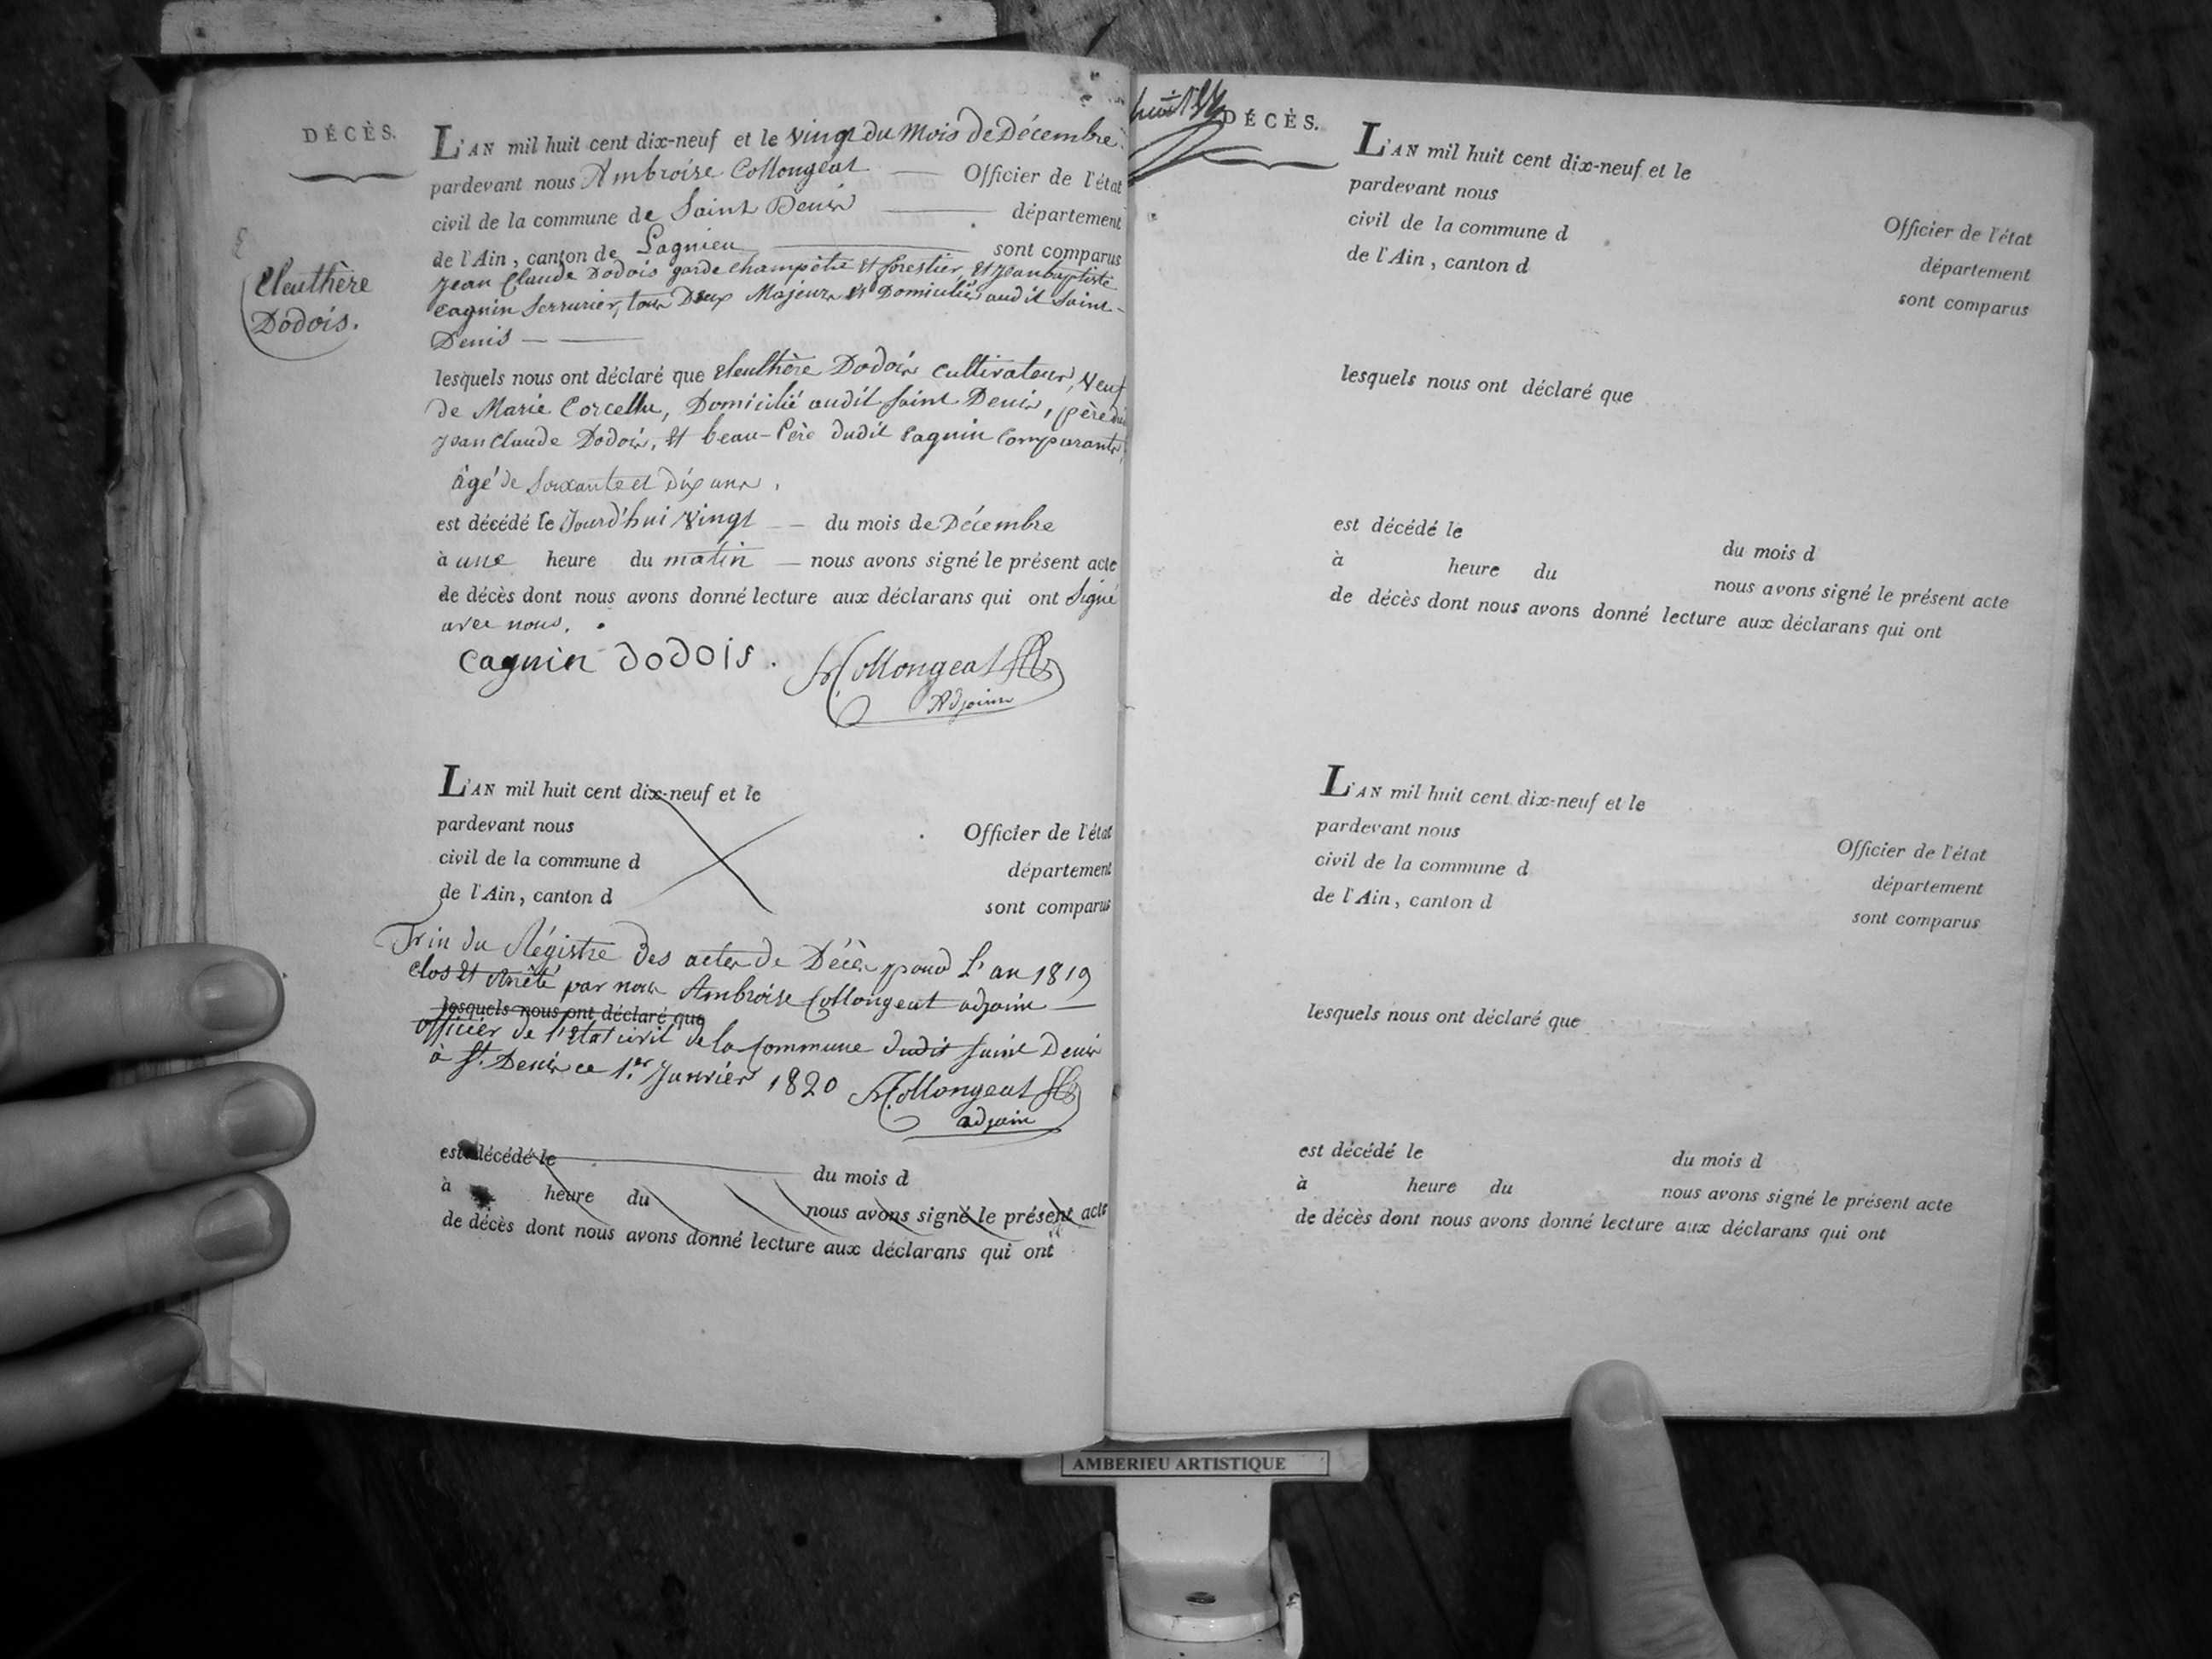 DÉCÈS.
Eleuthère
Dodois.
L'AN mil huit cent dix-neuf et le vingt du Mois de Décembre
pardevant nous Ambroise Collongeat — Officier de l'état
civil de la commune de Saint Denis — département
de l'Ain, canton de Lagnieu — sont comparus
Jean Claude Dodois garde champêtre et forestier, et Jean baptiste
Caguin Serrurier, tous Deux Majeurs et Domiciliés audit Saint-
Denis —
lesquels nous ont déclaré que Eleuthère Dodois Cultivateur, Veuf
de Marie Corcellu, Domicilié audit Saint Denis, père du
Jean Claude Dodois, et beau-Père dudit Caguin Comparants,
âgé de Soixante et Dix ans,
est décédé le Jourd'hui Vingt — du mois de Décembre
à une heure du matin — nous avons signé le présent acte
de décès dont nous avons donné lecture aux déclarans qui ont Signé
avec nous.
Caguin Dodois. Collongeat
Adjoint
L'AN mil huit cent dix-neuf et le
pardevant nous Officier de l'état
civil de la commune d département
de l'Ain, canton d sont comparus
Fin du Régistre des actes de Décès pour L'an 1819
Clos et Arrêté par nous Ambroise Collongeat adjoint —
lesquels nous ont déclaré que
officier de l'Etat civil de la Commune dudit Saint Denis
à St. Denis ce 1.er Janvier 1820 Collongeat
adjoint
est décédé le du mois d
à heure du nous avons signé le présent acte
de décès dont nous avons donné lecture aux déclarans qui ont
DÉCÈS.
L'AN mil huit cent dix-neuf et le
pardevant nous Officier de l'état
civil de la commune d département
de l'Ain, canton d sont comparus
lesquels nous ont déclaré que
est décédé le du mois d
à heure du nous avons signé le présent acte
de décès dont nous avons donné lecture aux déclarans qui ont
L'AN mil huit cent dix-neuf et le
pardevant nous Officier de l'état
civil de la commune d département
de l'Ain, canton d sont comparus
lesquels nous ont déclaré que
est décédé le du mois d
à heure du nous avons signé le présent acte
de décès dont nous avons donné lecture aux déclarans qui ont
AMBERIEU ARTISTIQUE